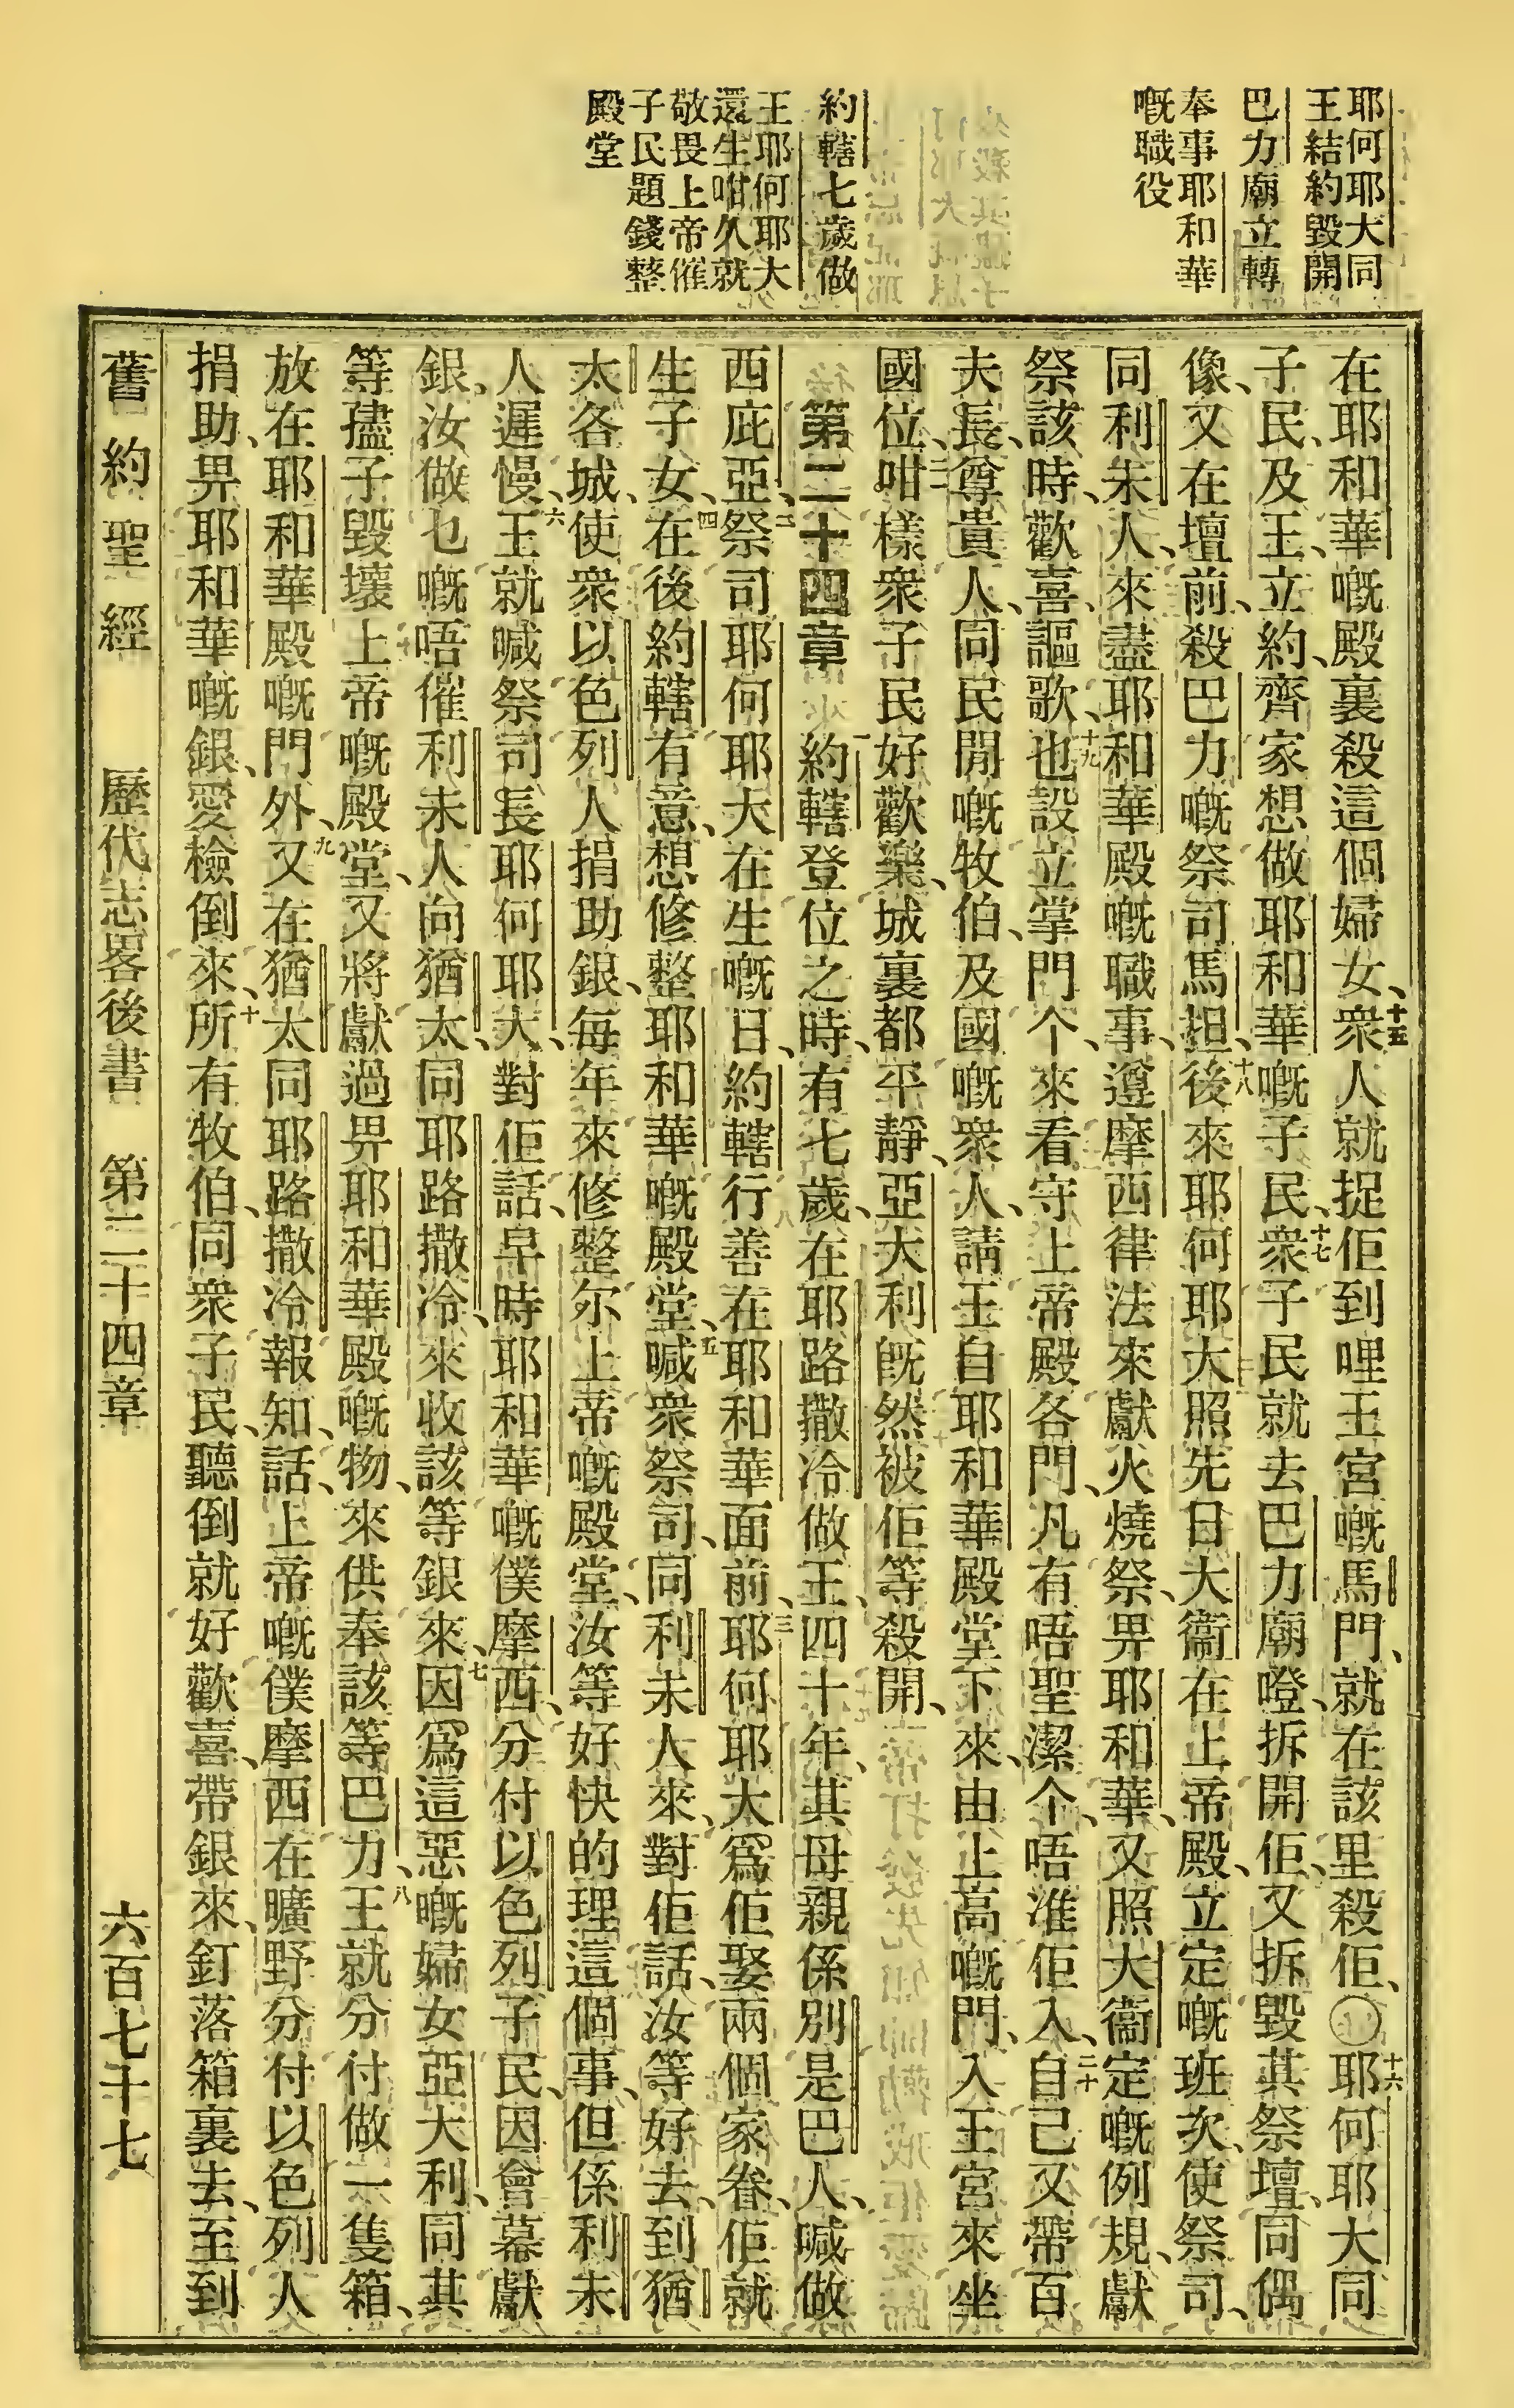 耶何耶大同
王結約毀開
巴力廟立轉
奉事耶和華
嘅職役
約轄七歲做
王耶何耶大
還生咁久就
敬畏上帝催
子民題錢整
殿堂
在耶和華嘅殿裏殺這個婦女、十五衆人就捉佢到哩王宮嘅馬門、就在該里殺佢、〇十六耶何耶大同
子民、及王、立約、齊家想做耶和華嘅子民、十七衆子民就去巴力廟噔、拆開佢、又拆毀其祭壇、同偶
像、又在壇前、殺巴力嘅祭司馬担、十八後來耶何耶大照先日大衞在上帝殿、立定嘅班次、使祭司、
同利未人、來盡耶和華殿嘅職事、遵摩西律法來獻火燒祭、畀耶和華、又照大衞定嘅例規、獻
祭該時、歡喜、謳歌、十九也設立掌門个、來看守上帝殿各門、凡有唔聖潔个、唔准佢入、二十自己又帶百
夫長、尊貴人、同民閒嘅牧伯、及國嘅衆人、請王自耶和華殿堂下來、由上高嘅門、入王宮來坐
國位、二一咁樣衆子民好歡樂、城裏都平靜、亞大利旣然被佢等殺開、
第二十四章 一約轄登位之時、有七歲、在耶路撒冷做王、四十年、其母親係別是巴人、喊做
西庇亞、二祭司耶何耶大在生嘅日、約轄行善在耶和華面前、三耶何耶大爲佢娶兩個家眷、佢就
生子女、四在後約轄有意、想修整耶和華嘅殿堂、五喊衆祭司、同利未人來、對佢話、汝等好去、到猶
太各城、使衆以色列人捐助銀、每年來修整尔上帝嘅殿堂、汝等好快的理這個事、但係利未
人遲慢、六王就喊祭司長耶何耶大、對佢話、早時耶和華嘅僕摩西、分付以色列子民、因會幕獻
銀、汝做乜嘅唔催利未人向猶太、同耶路撒冷、來收該等銀來、七因爲這惡嘅婦女亞大利、同其
等孻子毀壞上帝嘅殿堂、又將獻過畀耶和華殿嘅物、來供奉該等巴力、八王就分付做一隻箱、
放在耶和華殿嘅門外、九又在猶太同耶路撒冷報知、話、上帝嘅僕摩西在曠野分付以色列人
捐助、畀耶和華嘅銀、愛檢倒來、十所有牧伯、同衆子民、聽倒就好歡喜、帶銀來、釘落箱裏去、至到
舊約聖經 歷代志畧後書 第二十四章 六百七十七